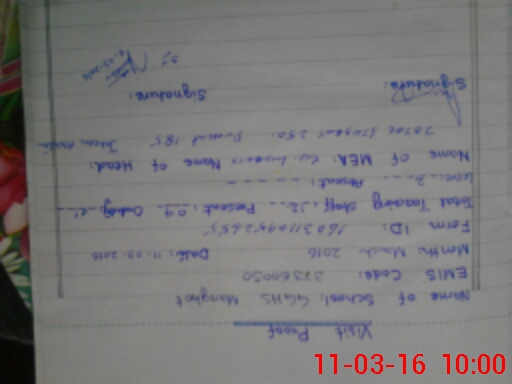 Visit Proof
Name of School: GGHS Manghot
EMIS Code: 37360050
Month: March 2016 Date: 11-03-2016
Form ID:
Total Teaching Staff: 12 Present: 09 On
leave: 2 Absent:
Name of MEA: Name of Head:
Total Student 250. Present 185
Signature: Signature:
11-03-16 10:00